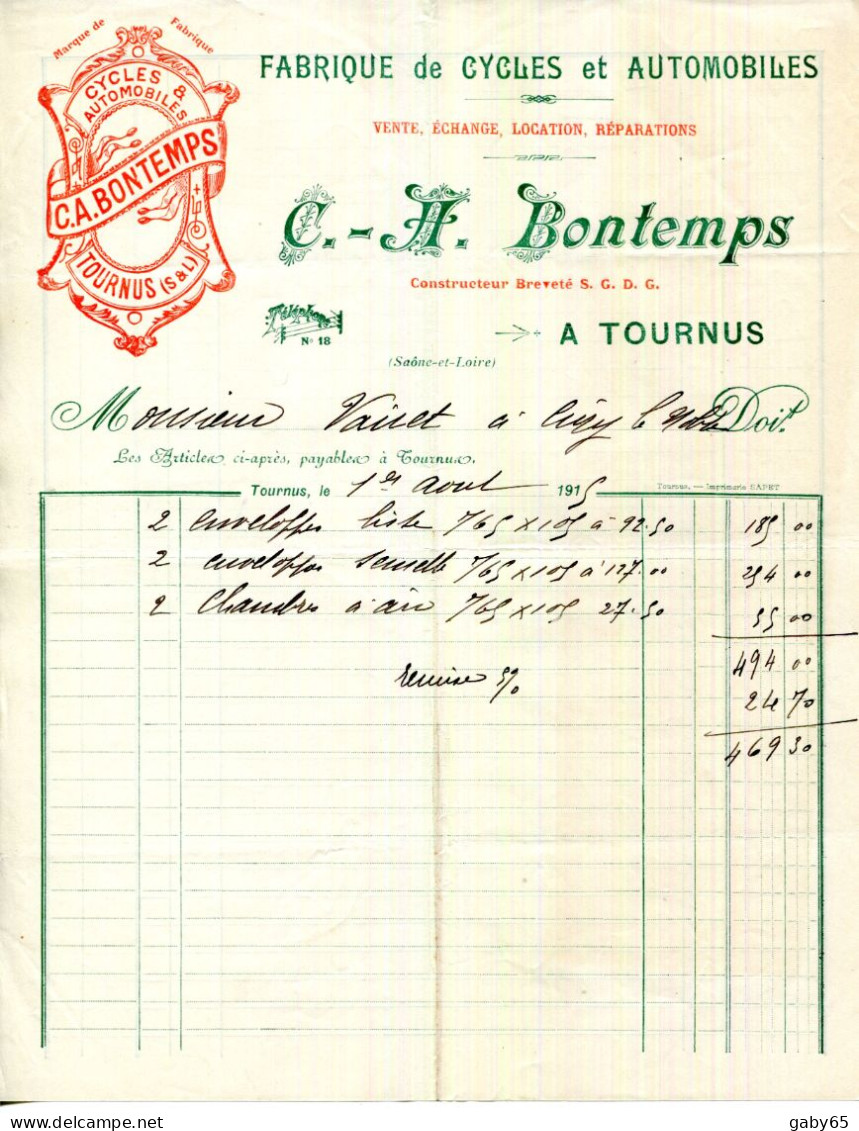 Marque de Fabrique
CYCLES &
AUTOMOBILES
C.A. BONTEMPS
TOURNUS (S & L)
FABRIQUE de CYCLES et AUTOMOBILES
VENTE, ÉCHANGE, LOCATION, RÉPARATIONS
C.-A. Bontemps
Constructeur Breveté S. G. D. G.
Téléphone
No 18
A TOURNUS
(Saône-et-Loire)
Monsieur à le Doit
Les Articles ci-après, payables à Tournus.
Tournus, le 1er aout 1915
Tournus. — Imprimerie SAPET
2 enveloppes liste 765 x 105 à 92.50 185 00
2 enveloppes semelle 765 x 105 à 127.00 254 00
2 Chambres à air 765 x 105 27.50 55 00
494 00
remise 5% 24 70
469 30
delcampe.net
gaby65